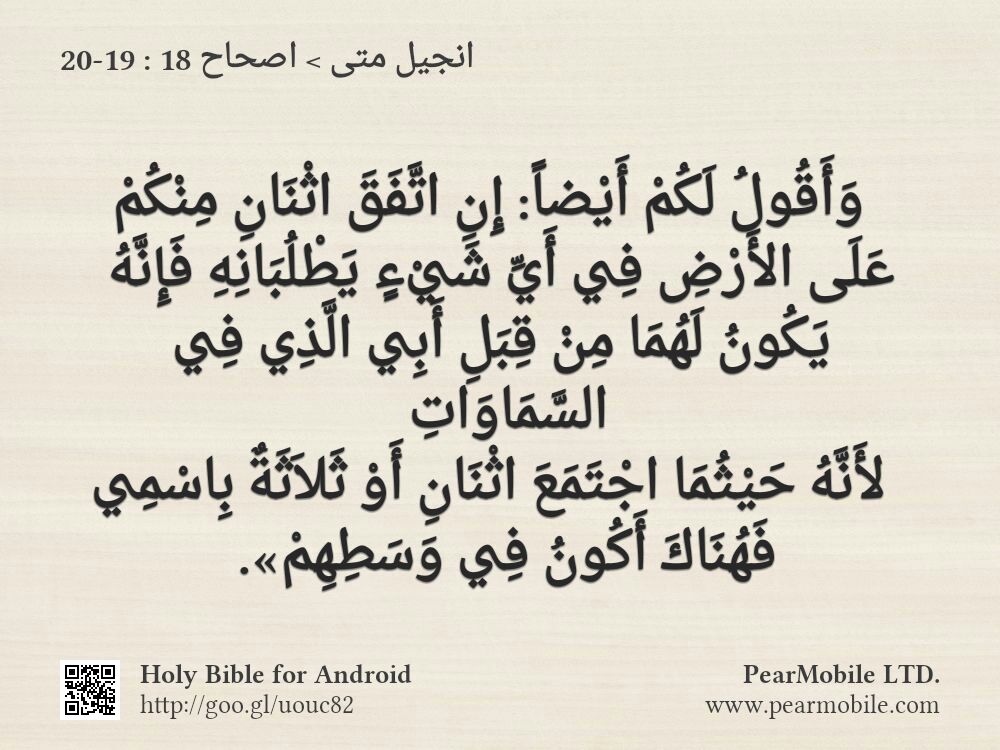 انجيل متى > اصحاح 18 : 19-20
وَأَقُولُ لَكُمْ أَيْضاً: إِنِ اتَّفَقَ اثْنَانِ مِنْكُمْ
عَلَى الأَرْضِ فِي أَيِّ شَيْءٍ يَطْلُبَانِهِ فَإِنَّهُ
يَكُونُ لَهُمَا مِنْ قِبَلِ أَبِي الَّذِي فِي
السَّمَاوَاتِ
لأَنَّهُ حَيْثُمَا اجْتَمَعَ اثْنَانِ أَوْ ثَلاَثَةٌ بِاسْمِي
فَهُنَاكَ أَكُونُ فِي وَسَطِهِمْ».
Holy Bible for Android
http://goo.gl/uouc82
PearMobile LTD.
www.pearmobile.com